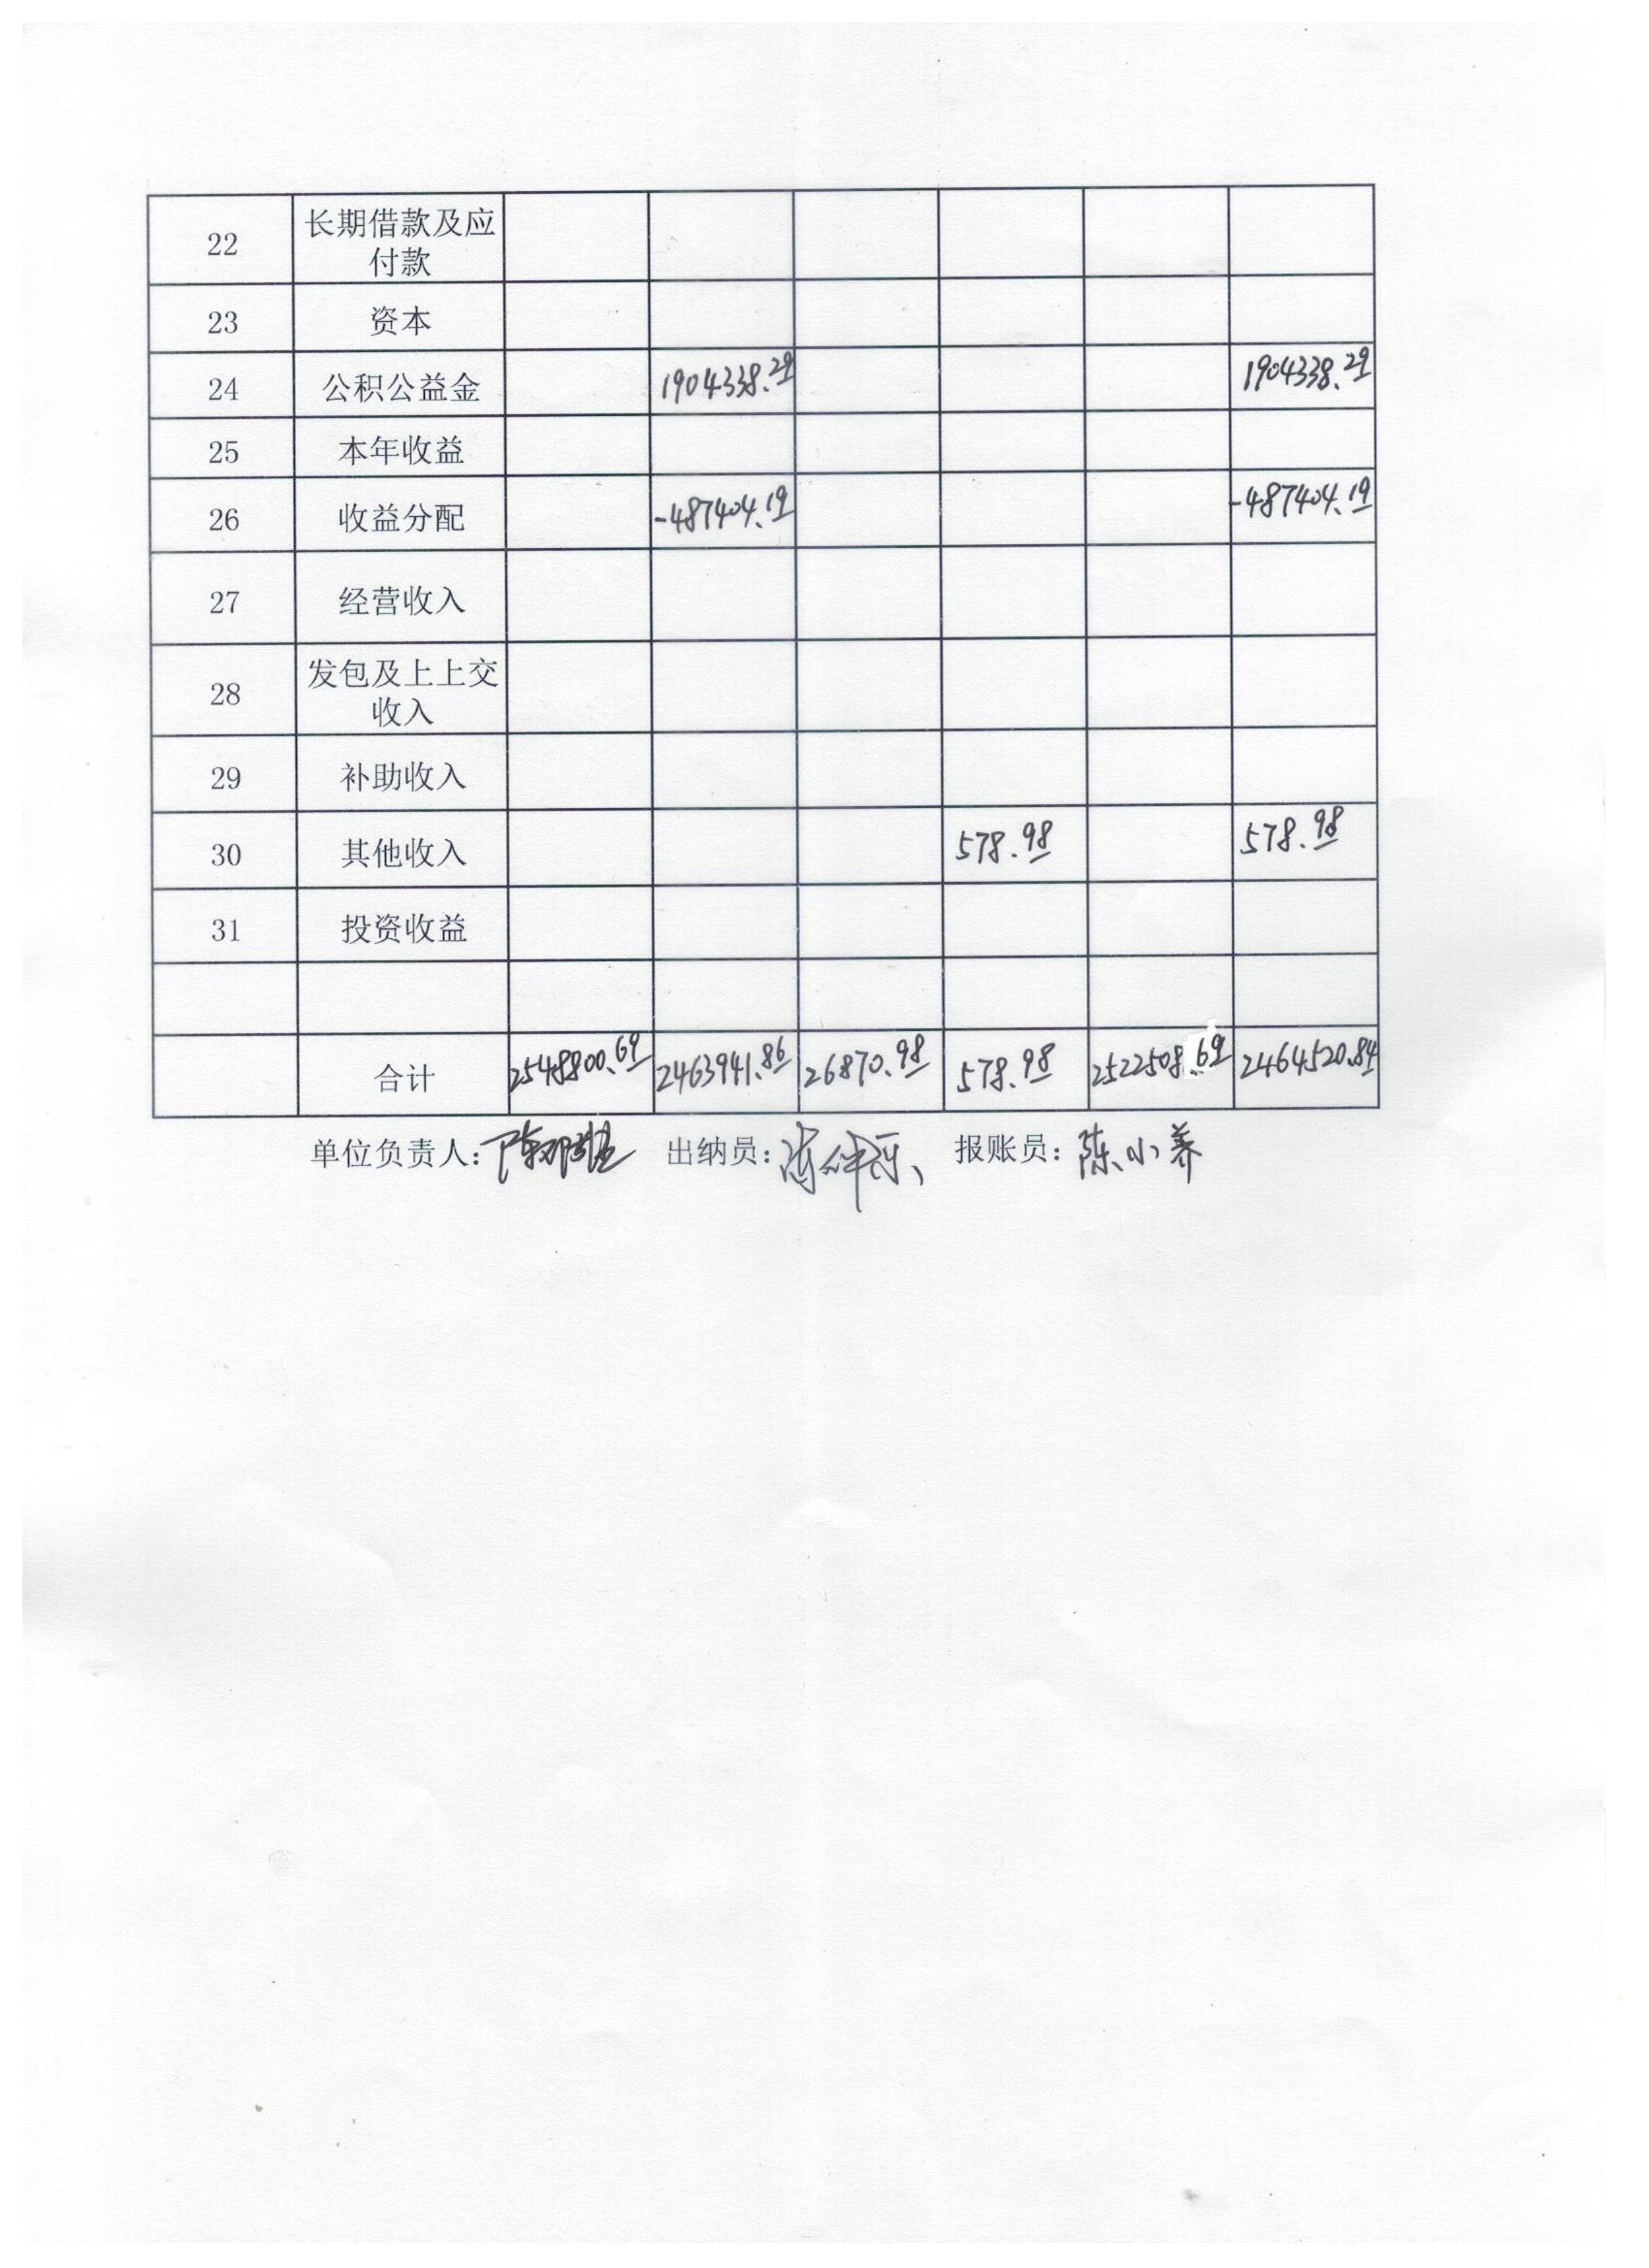 22 长期借款及应
付款
23 资本
24 公积公益金 1904338.29 1904338.29
25 本年收益
26 收益分配 -487404.19 -487404.19
27 经营收入
28 发包及上上交
收入
29 补助收入
30 其他收入 578.98 578.98
31 投资收益
合计 2548800.69 2463941.86 26870.98 578.98 2522508.69 2464520.84
单位负责人: 出纳员: 报账员: 陈小养